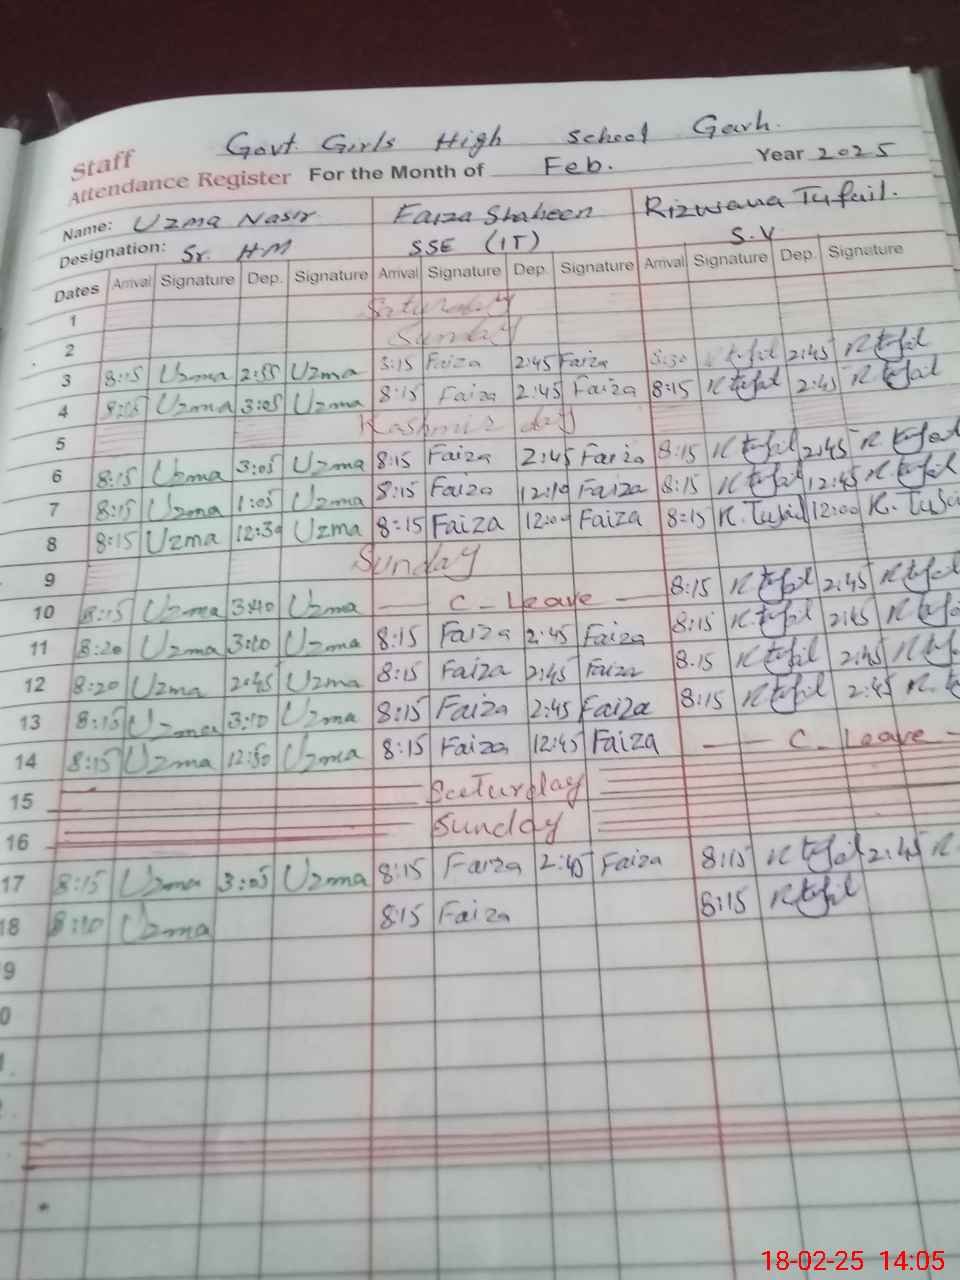 Govt. Girls High School Garh.
Staff
Attendance Register For the Month of Feb. Year 2025
Name: Uzma Nasir Faiza Shaheen Rizwana Tufail.
Designation: Sr. HM SSE (IT) S.V
Dates Arrival Signature Dep. Signature Arrival Signature Dep. Signature Arrival Signature Dep. Signature
1 Saturday
2 Sunday
3 8:15 Uzma 2:55 Uzma 8:15 Faiza 2:45 Faiza 8:30 R tufail 2:45 R tufail
4 8:05 Uzma 3:05 Uzma 8:15 Faiza 2:45 Faiza 8:15 R tufail 2:45 R tufail
5 Kashmir day
6 8:15 Uzma 3:05 Uzma 8:15 Faiza 2:45 Faiza 8:15 R tufail 2:45 R tufail
7 8:15 Uzma 1:05 Uzma 8:15 Faiza 12:10 Faiza 8:15 R tufail 12:45 R tufail
8 8:15 Uzma 12:30 Uzma 8:15 Faiza 12:00 Faiza 8:15 R. Tufail 12:00 R. Tufail
9 Sunday
10 8:15 Uzma 3:40 Uzma — C. Leave — 8:15 R tufail 2:45 R tufail
11 8:20 Uzma 3:20 Uzma 8:15 Faiza 2:45 Faiza 8:15 R. tufail 2:45 R tufail
12 8:20 Uzma 2:45 Uzma 8:15 Faiza 2:45 Faiza 8.15 R tufail 2:45 R tufail
13 8:15 Uzma 3:10 Uzma 8:15 Faiza 2:45 Faiza 8:15 R tufail 2:45 R. tufail
14 8:15 Uzma 12:50 Uzma 8:15 Faiza 12:45 Faiza — C. Leave —
15 Saturday
16 Sunday
17 8:15 Uzma 3:05 Uzma 8:15 Faiza 2:45 Faiza 8:15 R tufail 2:45 R
18 8:10 Uzma 8:15 Faiza 8:15 R tufail
9
0
18-02-25 14:05